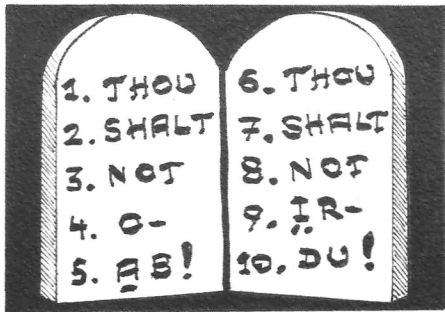 1. THOU
2. SHALT
3. NOT
4. O-
5. A̱B!
6. THOU
7. SHALT
8. NOT
9. I̤R-
10. DU!